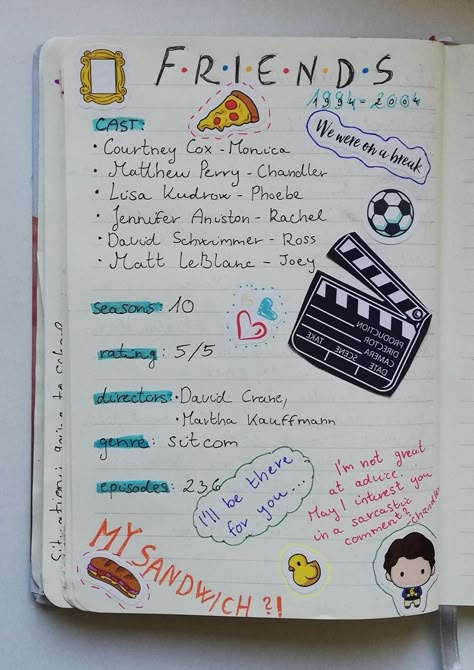 F·R·I·E·N·D·S
1994-2004
CAST:
• Courtney Cox - Monica
• Matthew Perry - Chandler
• Lisa Kudrow - Phoebe
• Jennifer Aniston - Rachel
• David Schwimmer - Ross
• Matt LeBlanc - Joey
We were on a break
PRODUCTION
DIRECTOR
CAMERA
DATE SCENE TAKE
seasons: 10
rating: 5/5
directors: • David Crane,
• Martha Kauffmann
genre: sitcom
episodes: 236
I'll be there
for you...
I'm not great
at advice.
May I interest you
in a sarcastic
comment?
-Chandler
MY SANDWICH?!
Situation: going to school